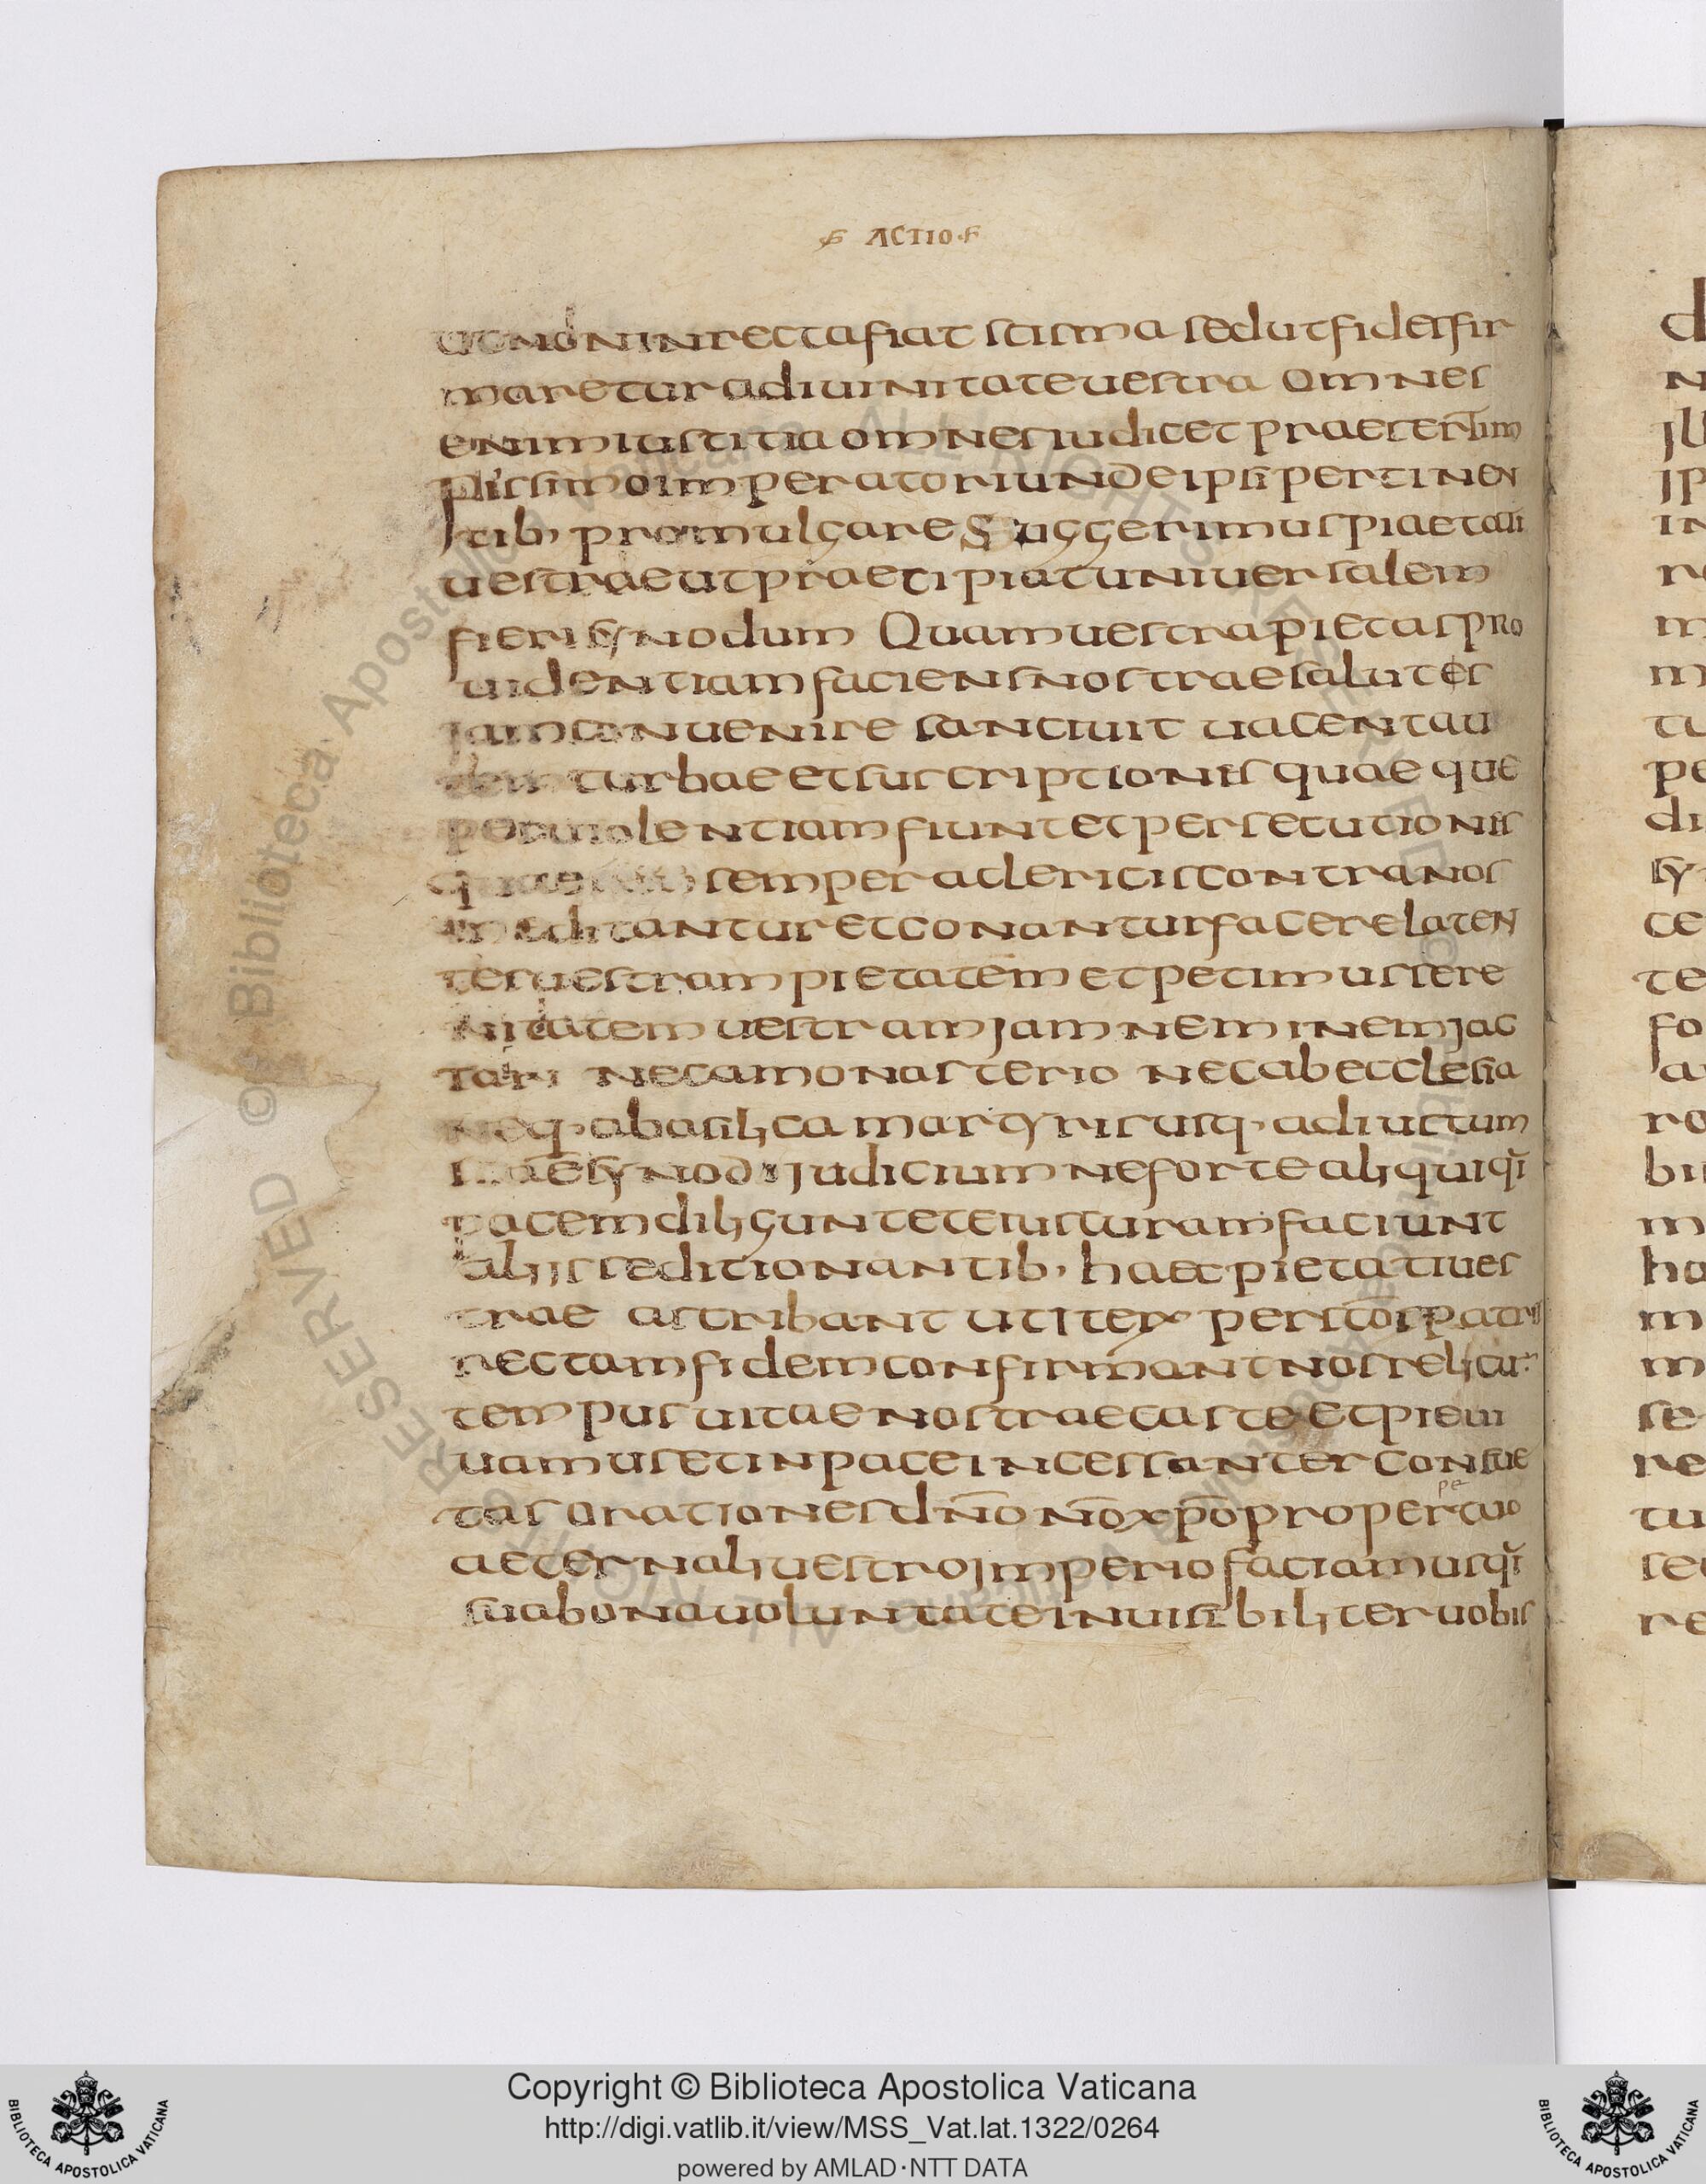 ACTIO
ut non in recta fiat scisma sed ut fides fir
maretur a diuinitate uestra Omnes
enim iustitia omnes iudicet praesertim
piissimo imperatori unde ipsi pertinen
tib; promulgare Suggerimus pietati
uestrae ut praecipiat uniuersalem
fieri synodum Quam uestra pietas pro
uidentiam faciens nostrae salutes
jam conuenire sanciuit uacent au
dem turbae et suscriptionis quae que
per uiolentiam fiunt et persecutionis
quae semper a clericis contra nos
meditantur et conantur facere laten
ter uestram pietatem et petimus sere
nitatem uestram jam neminem jac
tari nec a monasterio nec ab ecclesia
neq; a basilica martyris usq; ad iustum
synodi judicium ne forte aliqui qi
pacem diligunt et ceiusturam faciunt
aliis seditionantib; haec pietati ues
trae astribant ut iter per scos patris
rectam fidem confirmant nos relicum
tempus uitae nostrae caste et pie ui
uamus et in pace incessanter consue
tas orationes dno no xpo pro pertuo
pe
aeternali uestro jmperio faciamus qi
sua bona uoluntate inuisibiliter uobis
Copyright © Biblioteca Apostolica Vaticana
http://digi.vatlib.it/view/MSS_Vat.lat.1322/0264
powered by AMLAD·NTT DATA
BIBLIOTECA APOSTOLICA VATICANA
BIBLIOTECA APOSTOLICA VATICANA